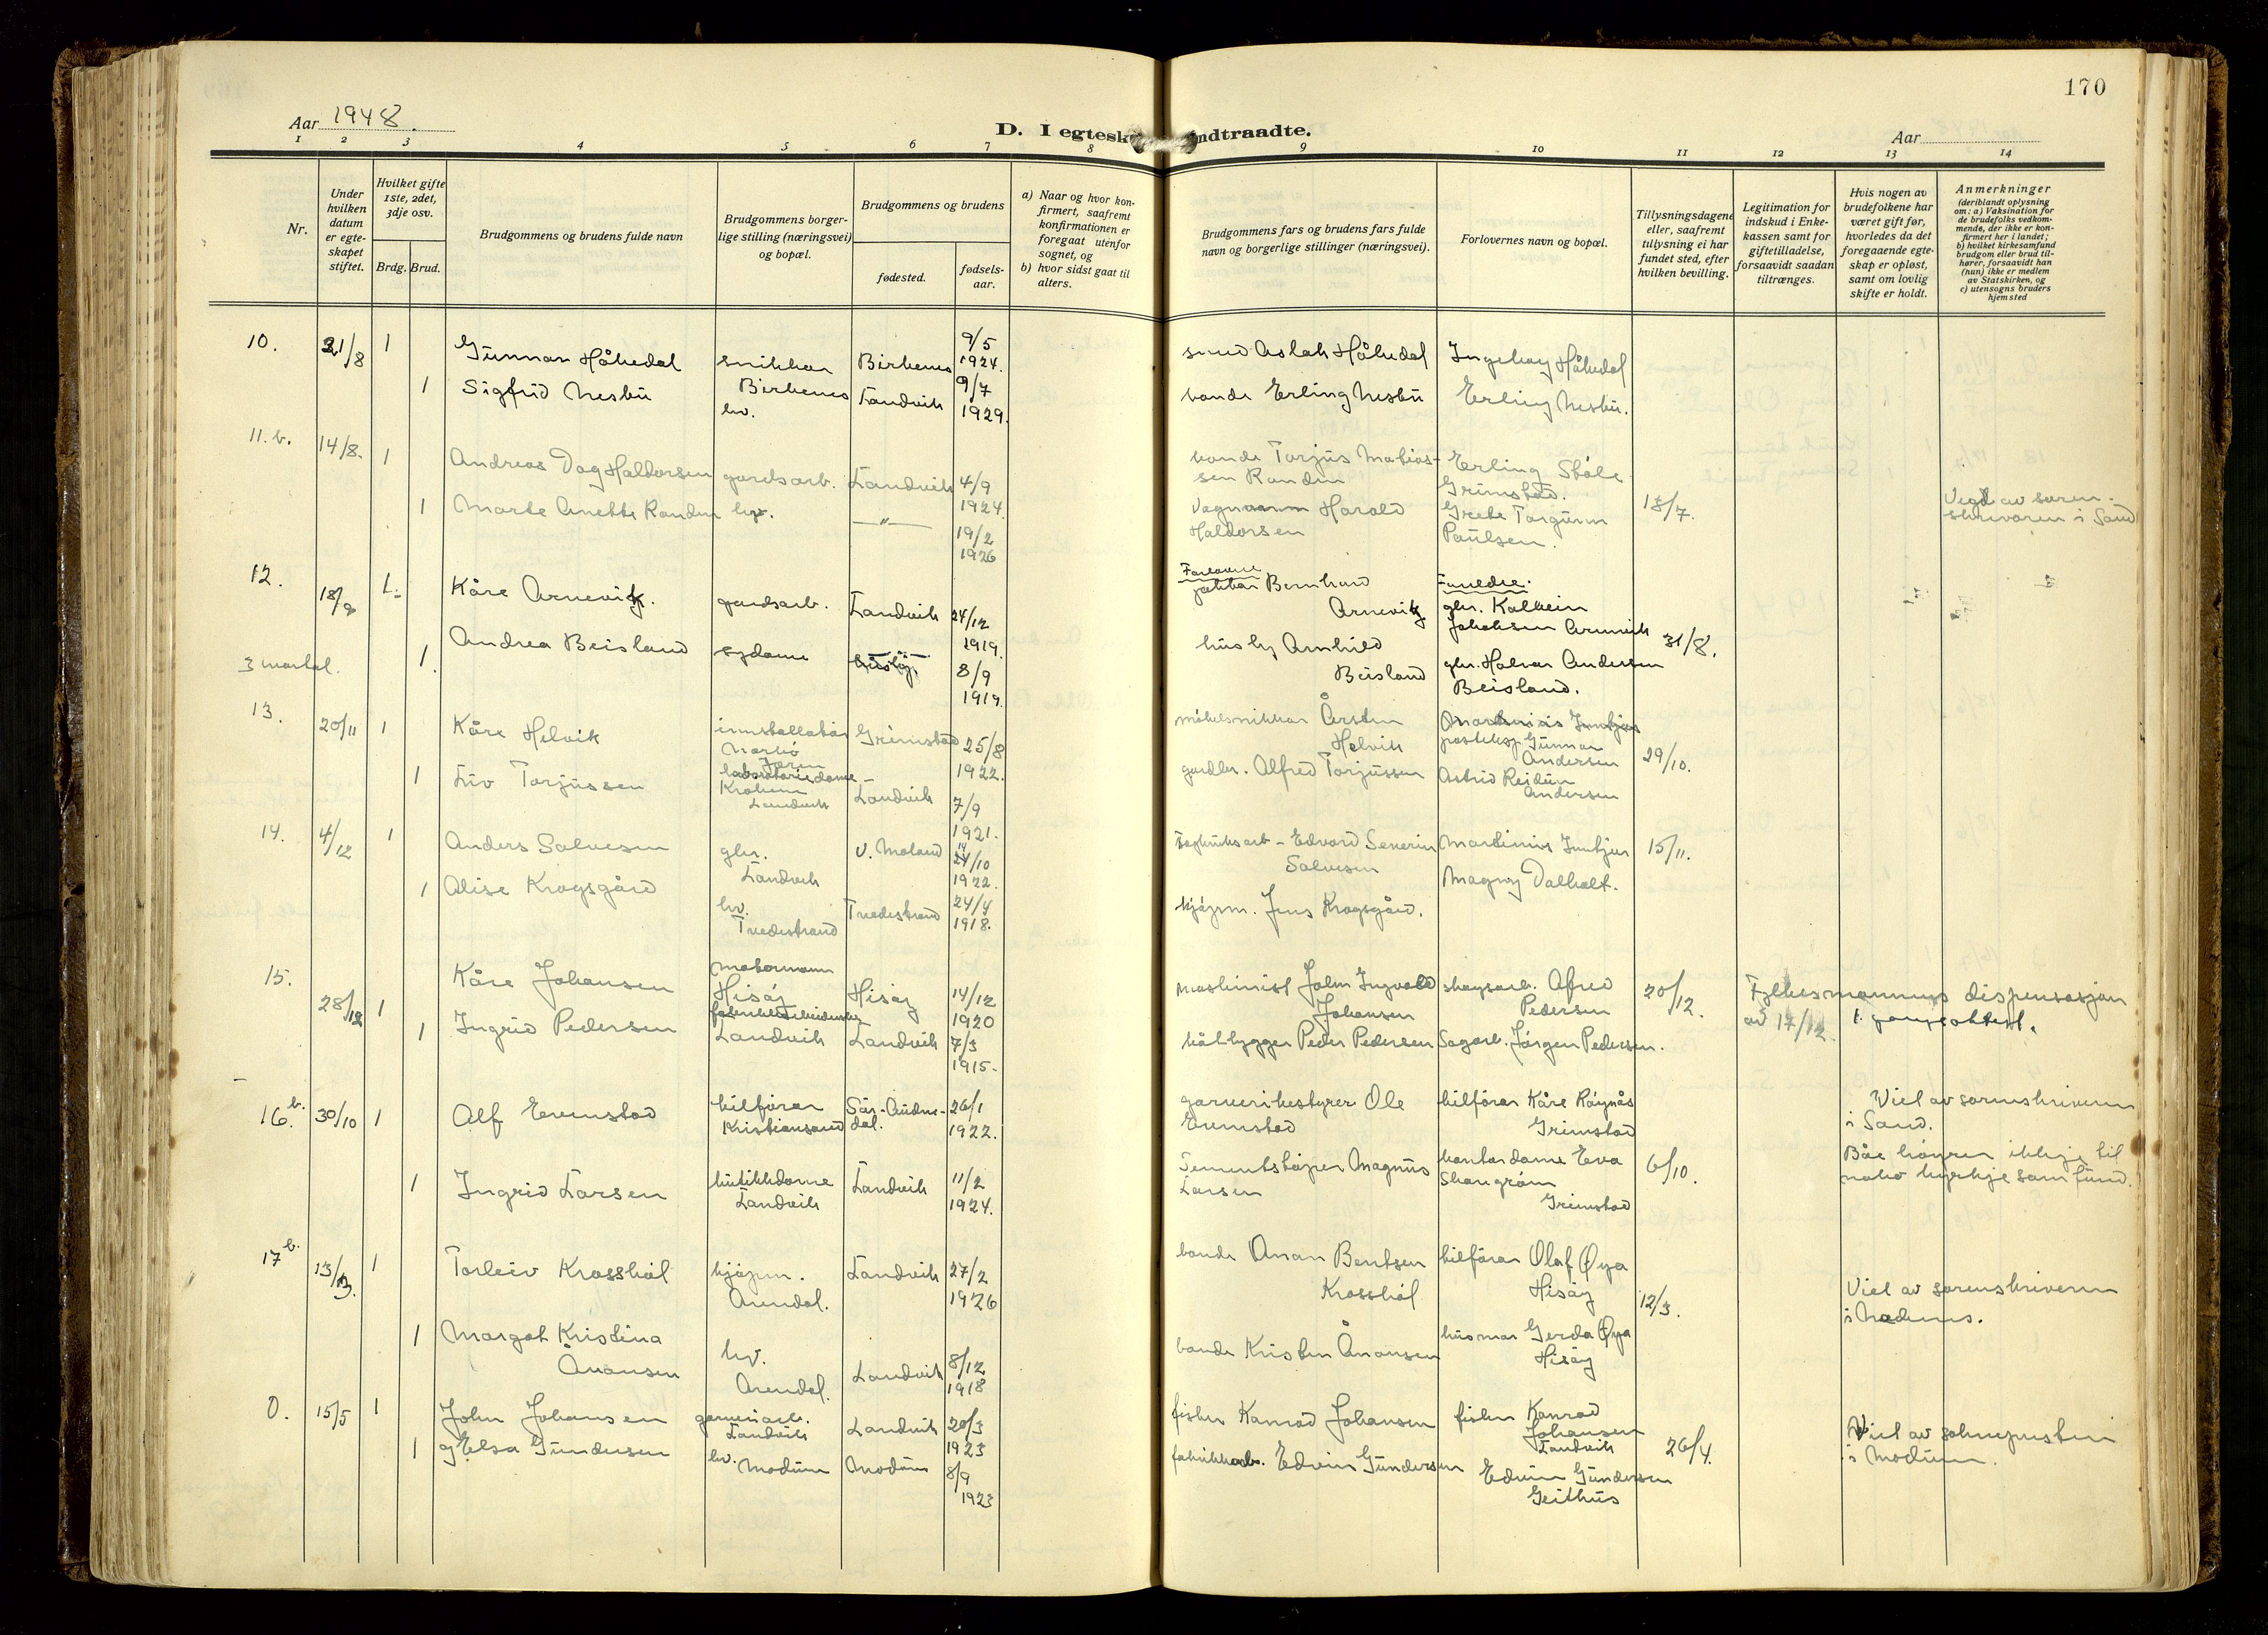 170
Aar 1948.
D. I egtesk
ndtraadte.
Aar
1 2 3 4 5 6 7 8 9 10 11 12 13 14
Nr.
Under hvilken datum er egteskapet stiftet.
Hvilket gifte 1ste, 2det, 3dje osv.
Brdg. Brud.
Brudgommens og brudens fulde navn
Brudgommens borgerlige stilling (næringsvei) og bopæl.
Brudgommens og brudens
fødested.
fødselsaar.
a) Naar og hvor konfirmert, saafremt konfirmationen er foregaat utenfor sognet, og
b) hvor sidst gaat til alters.
Brudgommens fars og brudens fars fulde navn og borgerlige stillinger (næringsvei).
Forlovernes navn og bopæl.
Tillysningsdagene eller, saafremt tillysning ei har fundet sted, efter hvilken bevilling.
Legitimation for indskud i Enkekassen samt for giftetilladelse, forsaavidt saadan tiltrænges.
Hvis nogen av brudefolkene har været gift før, hvorledes da det foregaaende egteskap er opløst, samt om lovlig skifte er holdt.
Anmerkninger (deriblandt oplysning om: a) Vaksination for de brudefolks vedkommende, der ikke er konfirmert her i landet; b) hvilket kirkesamfund brudgom eller brud tilhører, forsaavidt han (hun) ikke er medlem av Statskirken, og c) utensogns bruders hjemsted
10. 21/8 1 Gunnar Håkedal snikkar Birkenes 9/5 1924. smed Aslak Håkedal Ingebay Håkedal
1 Sigfrid Nesbu Birkenes hv. Landvik 9/7 1929. bonde Erling Nesbu Erling Nesbu.
11.b. 14/8. 1 Andreas Dag Haldorsen gardsarb. Landvik 4/9 1924. bonde Torjus Matiassen Randen Erling Ståle Grimstad. 18/7. Vigd av sorenskrivaren i Sand
1 Marte Anette Randen hv. —"— 19/2 1926 Vognmann Harald Haldorsen Grete Torgunn Paulsen.
12. 18/9 1. Kåre Arnevik. gardsarb. Landvik 24/12 1919. Bernhard Arnevik Foreldre. gbr. Johansen Arnevik 31/8.
3 mortal. 1. Andrea Beisland sydame 8/9 1919. husby Arnhild Beisland gbr. Halvor Andersen Beisland.
13. 20/11 1 Kåre Helvik installatør Jæren Grimstad 25/8 1922. møbelsnikkar Helvik posteksp. Gunnar Andersen 29/10.
1 Liv Torjussen laboratoriedame Landvik Landvik 7/9 1921. gardbr. Alfred Torjussen Astrid Reidun Andersen
14. 4/12 1 Anders Salvesen gbr. Landvik V. Moland 24/10 1922. Edvard Severin Salvesen Martinius Innkjær 15/11.
1 Alise Krogsgård hv. Tvedestrand Tvedestrand 24/4 1918. kjøpm. Jens Krogsgård. Magny Dalholt.
15. 28/12 1 Kåre Johansen motormann Hisøy Hisøy 14/12 1920 maskinist John Ingvald Johansen skogsarb. Afred Pedersen 20/12. Fylkesmannens dispensasjon av 17/12.
1 Ingrid Pedersen Landvik Landvik 7/3 1915. båtbygger Peder Pedersen Sagarb. Jørgen Pedersen.
16.b. 30/10 1 Alf Evenstad bilførar Kristiansand Sør-Audnedal. 26/1 1922. garveribestyrer Ole Evenstad bilførar Kåre Røynås Grimstad Viet av sorenskriveren i Sand.
1 Ingrid Larsen butikkdame Landvik Landvik 11/2 1924. Sementstøper Magnus Larsen kontordame Eva Skangrøm Grimstad 6/10. Båe høyrer ikkje til noko kyrkjesamfund.
17b. 13/3. 1 Torleiv Krosshål kjøpm. Arendal. Landvik 27/2 1926 bonde Anan Bentsen Krosshål bilførar Olaf Øya Hisøy 12/3. Viet av sorenskriveren i Nedenes.
1 Margot Kristina Ånansen hv. Arendal. Landvik 8/12 1918 bonde Kristen Ånansen husmor Gerda Øya Hisøy
0. 15/5 1 John Johansen garveriarb. Landvik Landvik 20/3 1923 fisker Konrad Johansen fisker Konrad Johansen Landvik 26/4. Viet av soknepresten i Modum.
1 Elsa Gundersen hv. Modum Modum 8/9 1923 fabrikkarb. Edvin Gundersen Edvin Gundersen Geithus